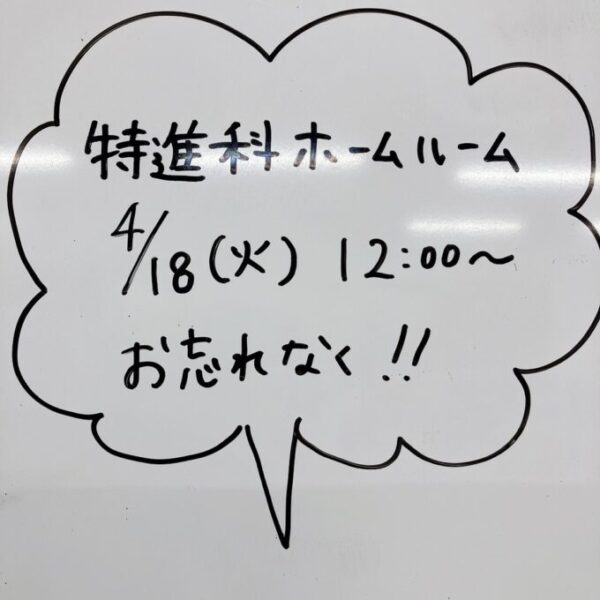 特進科ホームルーム
4/18(火) 12:00〜
お忘れなく!!